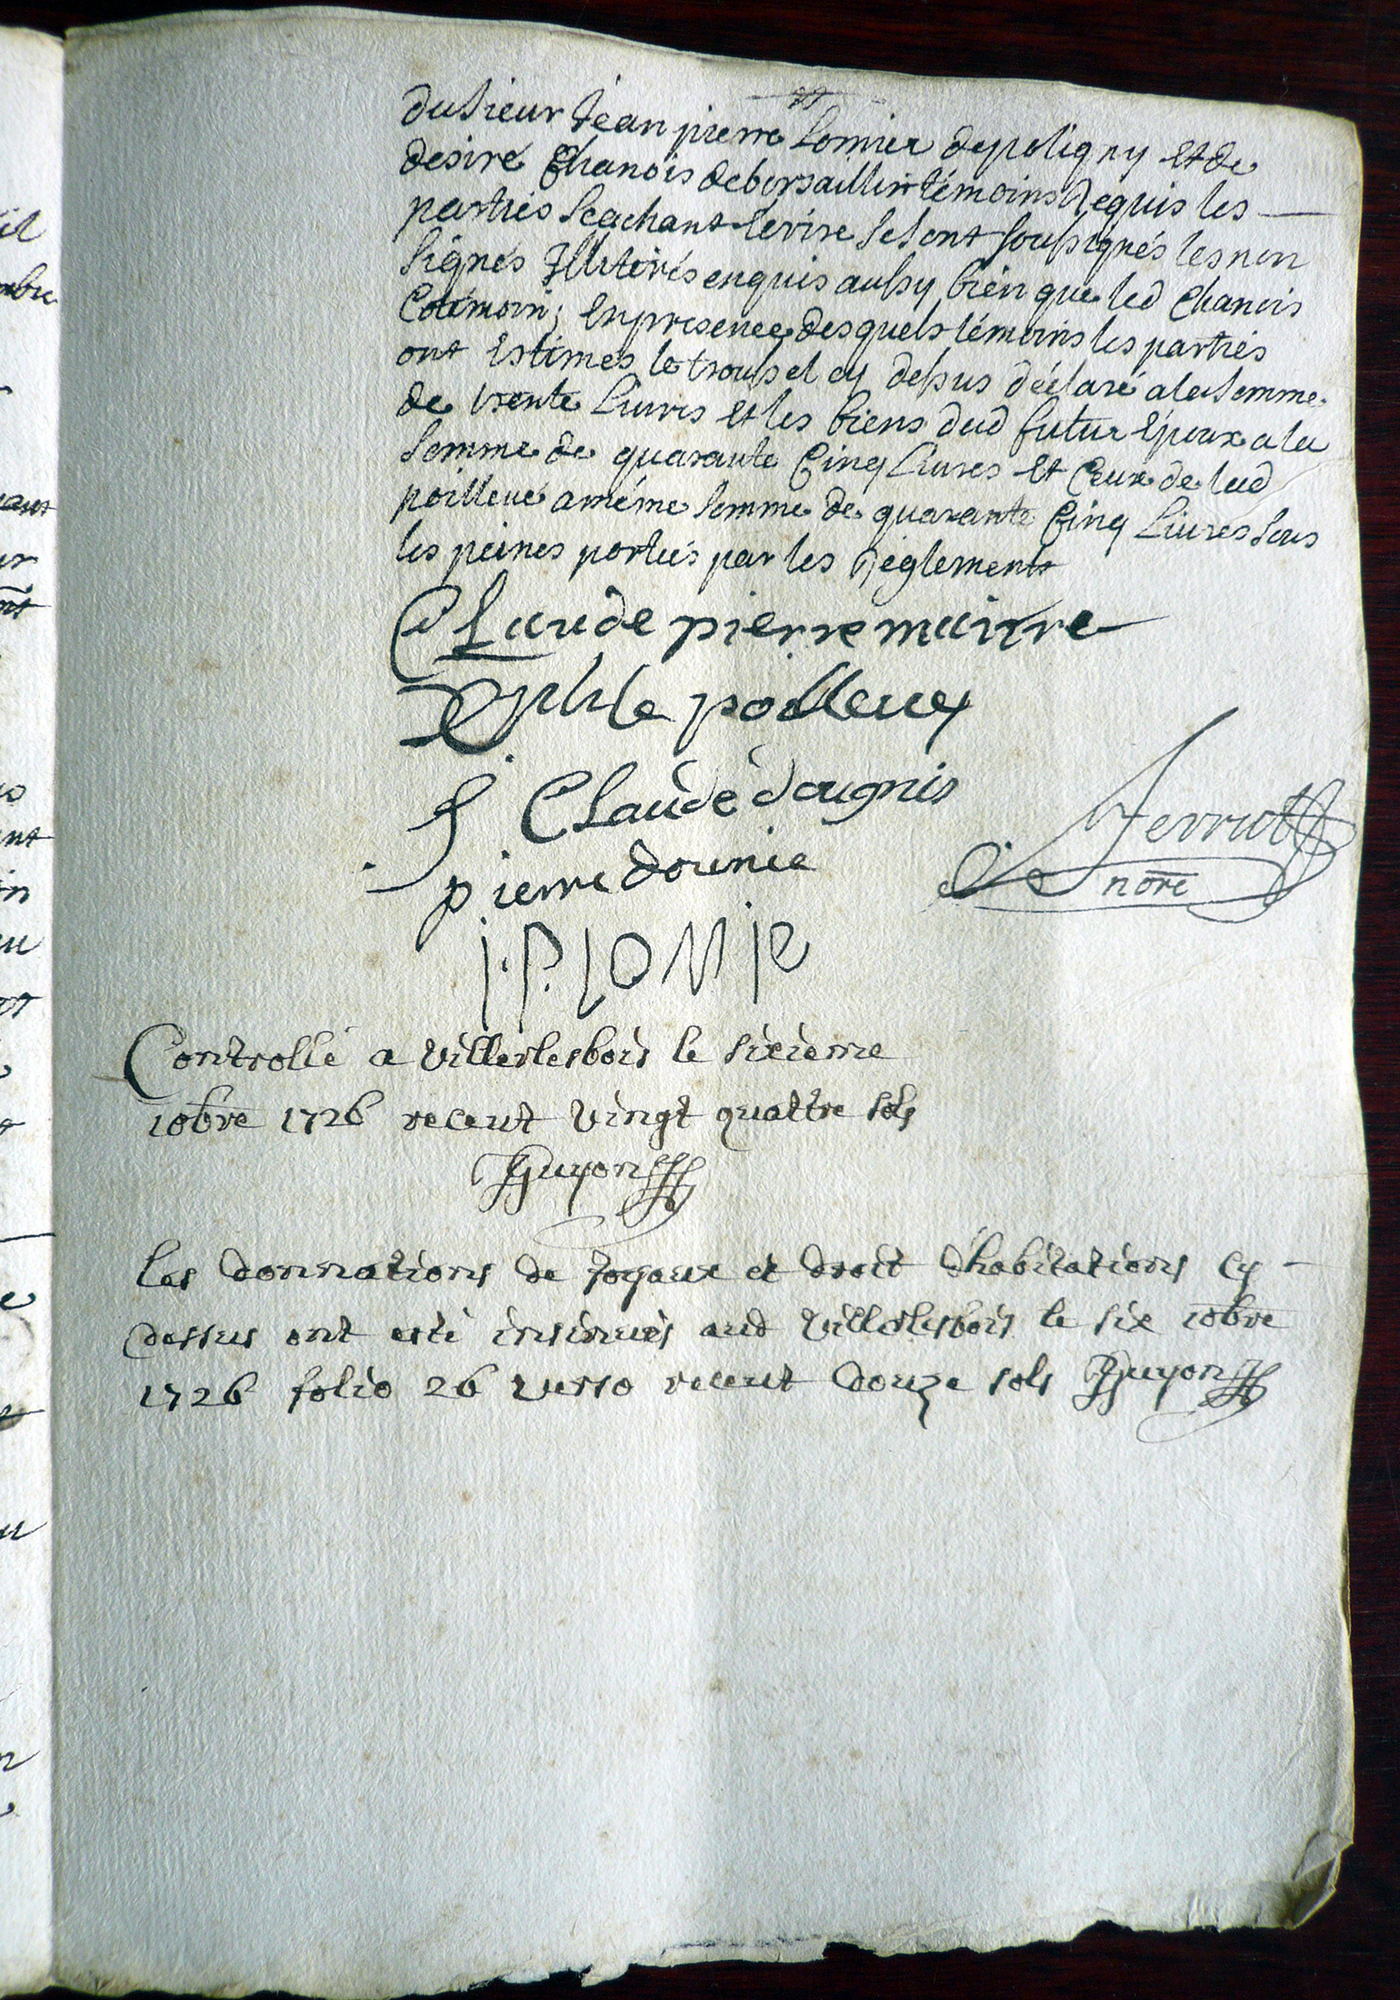 du sieur Jean pierre Lomier de poligny et de
desire Chanois de bersaillin témoins requis les
parties scachant ècrire se sont soubsignés les non
signés Illiterés enquis aussy bien que led Chanois
en presence desquels témoins les parties
ont Estimés le troussel cy dessus déclaré a la somme
de trente Livres et les biens dud futur Epoux a la
somme de quarante Cinq Livres et Ceux de lad
poilleux a méme somme de quarante Cinq Livres sous
les peines portées par les réglements
Claude pierre maitre
poilleux
Claude dougnis
pierre dounie
Ferrut
nore
J.P. LOMIE
Controllé a villerlesbois le sixieme
10bre 1726 receut vingt quattre sols
Guyon
les donnations de Joyaux et droit d'habitations Cy
dessus ont esté insinués aud villerlesbois le six 10bre
1726 folio 26 verso receut douze sols Guyon